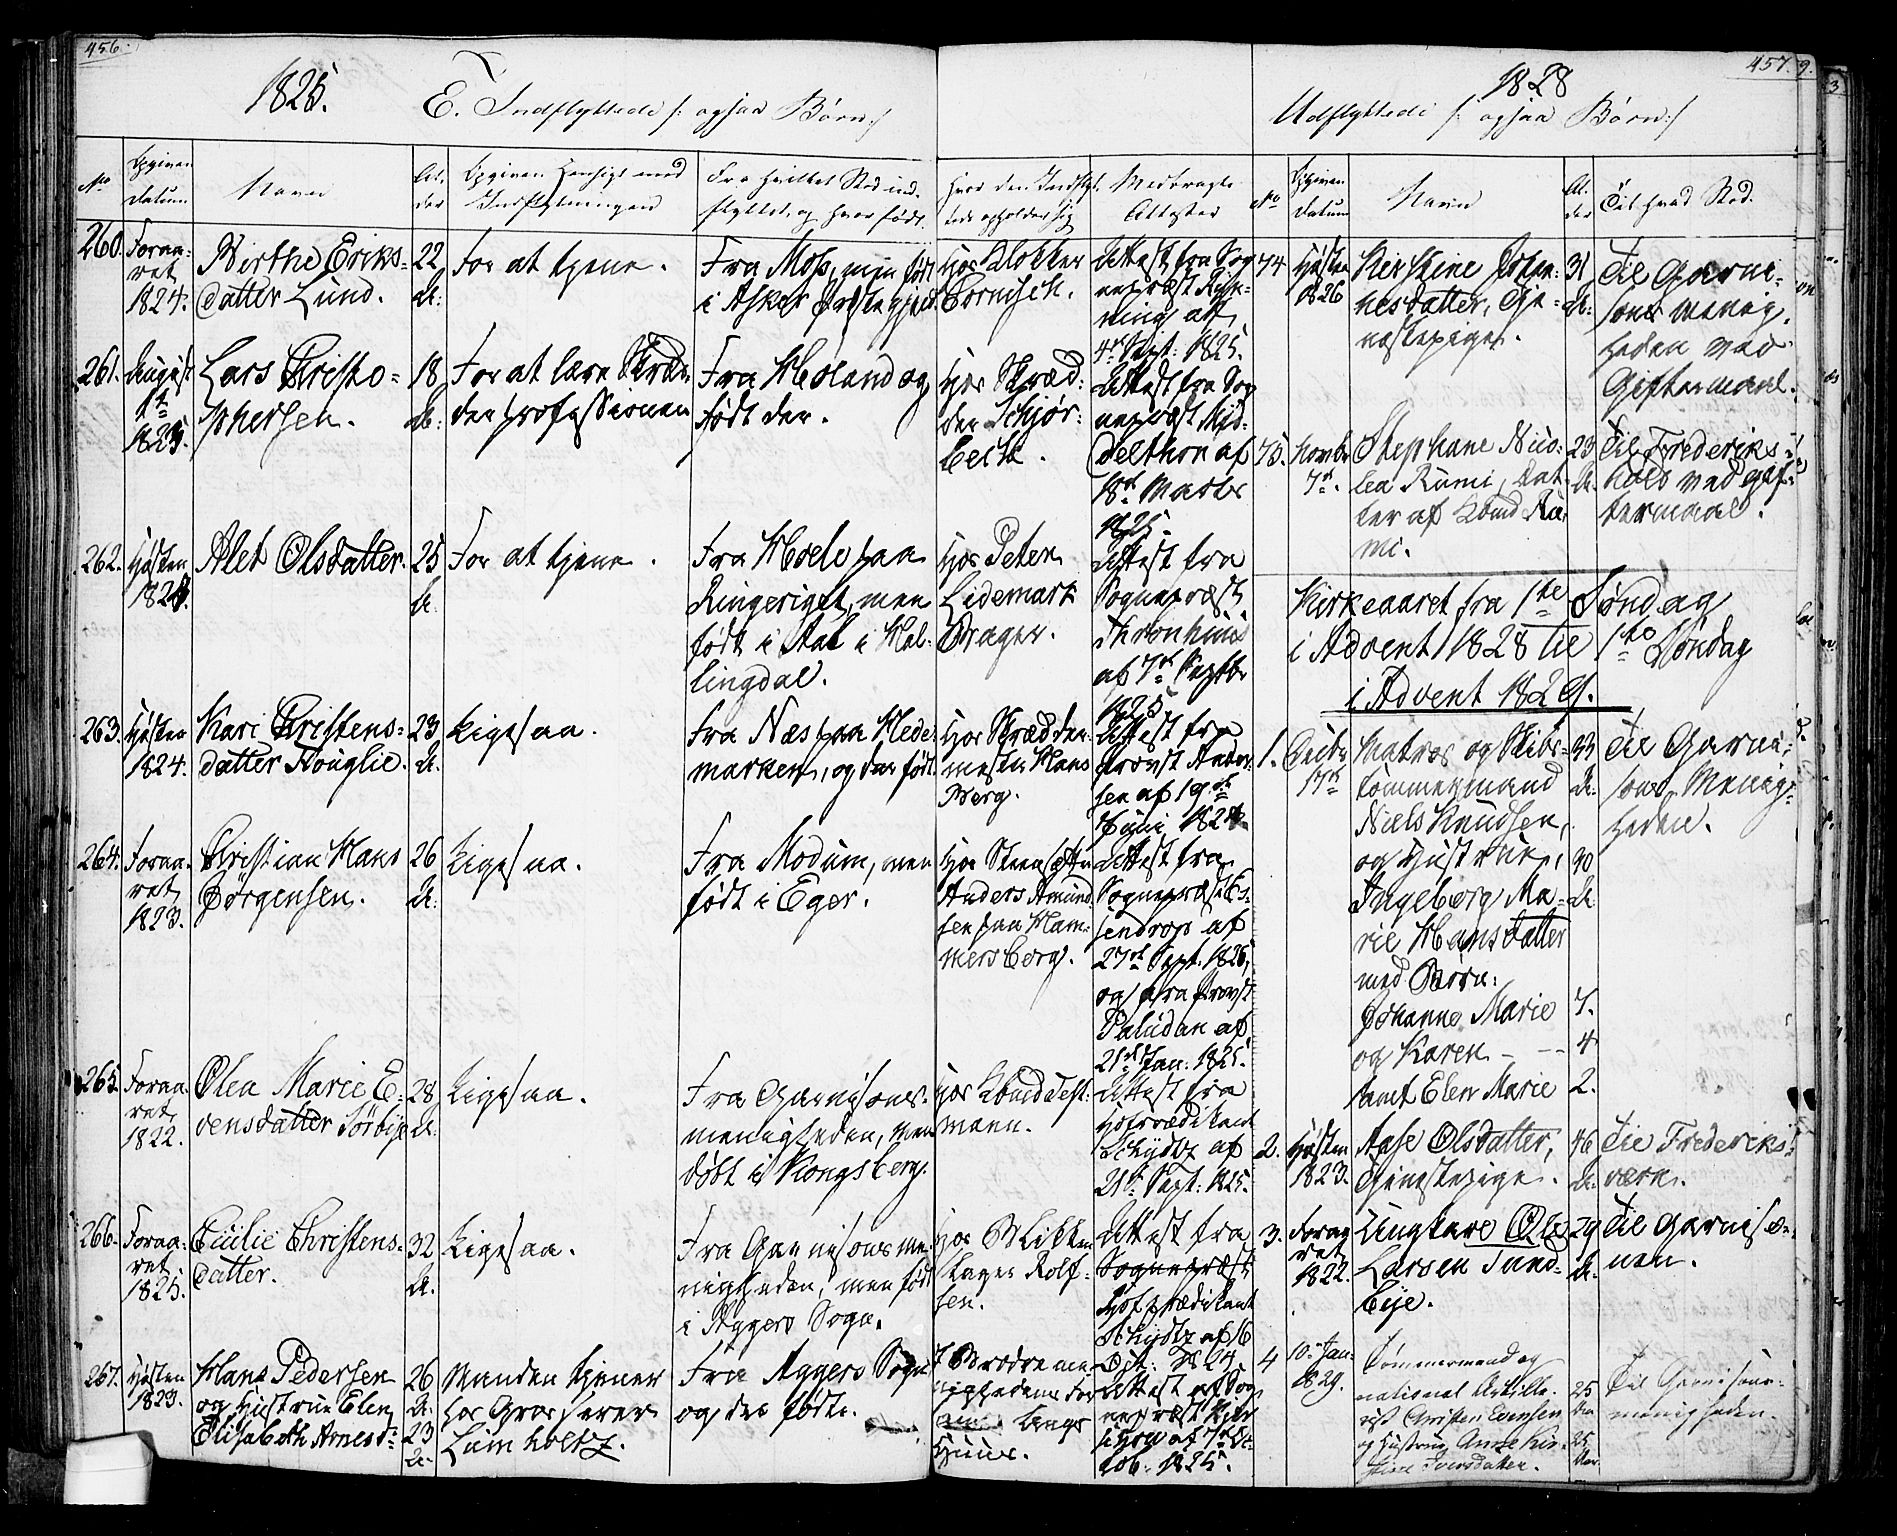 456.
1825.
E. Indflyttede /: ogsaa Børn :/
No
Opgiven Datum
Navn
Al-
der
Opgiven Hensigt med
Indflytningen
Fra hvilket Sted ind-
flyttet, og hvor født.
Hvor den Indflyt-
tede opholder sig
Medbragte
Attester
260.
Foraa-
ret
1824.
Birthe Eriks-
datter Lund.
22
A.
For at tjene.
Fra Moss, men født
i Asker Præstegjeld.
Hos Klokker
Cornisch.
Attest fra Sog-
nepræst Ryn-
ning af
4de Sept: 1825.
261.
August
1825.
Lars Christo-
phersen.
18
A.
For at lære Skræd-
derprofessionen
Fra Høland og
født der.
Hos Skræd-
der Schjør-
beck.
Attest fra Sog-
nepræst Myd-
delthon af
18de Marts
1825.
262.
Høsten
1824.
Alet Olsdatter.
25
A.
For at tjene.
Fra Hole paa
Ringeriget, men
født i Aal i Hal-
lingdal.
Hos Peter
Lidemark
Drager.
Attest fra
Sognepræst
Thronhuus
af 7de Septbr
1825.
263.
Høsten
1824.
Kari Christens-
datter Fouglie.
23
A.
Ligesaa.
Fra Næs paa Hede-
marken, og der født.
Hos Skrædder-
mester Hans
Berg.
Attest fra
Provst Ander-
sen af 19de
Juni 1824.
264.
Foraa-
ret
1823.
Christian Hans
Jørgensen.
26
A.
Ligesaa.
Fra Modum, men
født i Eger.
Hos Steensætter
Anders Amund-
sen paa Ham-
mersborg.
Attest fra
Sognepræst Es-
sendrop af
27de Sept. 1825,
og fra Provst
Paludan af
21de Jan: 1825.
265.
Foraa-
ret
1822.
Olea Marie E-
vensdatter Sørbye
28
A.
Ligesaa.
Fra Garnisons-
menigheden, men
født i Kongsberg.
Hos Kbmd Test-
mann.
Attest fra
Hofprædikant
Schydtz af
21de Sept: 1825.
266.
Foraa-
ret
1825.
Cicilie Christens-
datter.
32
A.
Ligesaa.
Fra Garnisonsme-
nigheden, men født
i Aggers Sogn.
Hos Blikken-
slager Rolf-
sen.
Attest fra
Sognepræst
Hofprædikant
Schydtz af 16
Oct: 1824.
267.
Høsten
1823.
Hans Pedersen
og Hustrue Elen
Elisabeth Arnesd:
26
A.
23
A.
Manden tjener
hos Grosserer
Lumholtz.
Fra Aggers Sogn
og der født.
I Brødreme-
nighedens For-
samlings
Huus.
Attest af Sog-
nepræst
af 7de Oc-
tob: 1825.
457.
1828
Udflyttede /: ogsaa Børn :/
No
Opgiven
Datum
Navn
Al-
der
Til hvad Sted.
74
Høsten
1826
Kirstine Johan-
nesdatter, Tje-
nestepige.
31
A.
Til Garni-
sons menig-
heden ved
Giftermaal.
75.
Novbr
7de.
Stephane Nico-
lea Rumi, Dat-
ter af Kbmd Ru-
mi.
23
A.
Til Frederiks-
hald ved gif-
termaal.
Kirkeaaret fra 1ste Søndag
i Advent 1828 til 1ste Søndag
i Advent 1829.
1.
Decbr
17de
Matros og Skibs-
tømmermand
Niels Knudsen,
og Hustrue,
Ingeborg Ma-
rie Hansdatter
med Børn:
Johanne Marie
og Karen - --
samt Elen Marie
33
A.
40
A.
7.
4
2.
Til Garni-
sons Menig-
heden.
2.
Høsten
1823.
Aase Olsdatter,
Tjenestepige.
46
A.
Til Frederiks-
værn.
3.
Foraa-
ret
1822.
Ungkarl Ole
Larsen Sund-
bye.
29
A.
Til Garniso-
nen.
4
10. Jan:
1829.
Tømmermand og
national Artille-
rist Christen Evensen
og Hustrue Anne Kir-
stine Iversdatter.
25
Aar
25
Aar
Til Garnisons-
menigheden.